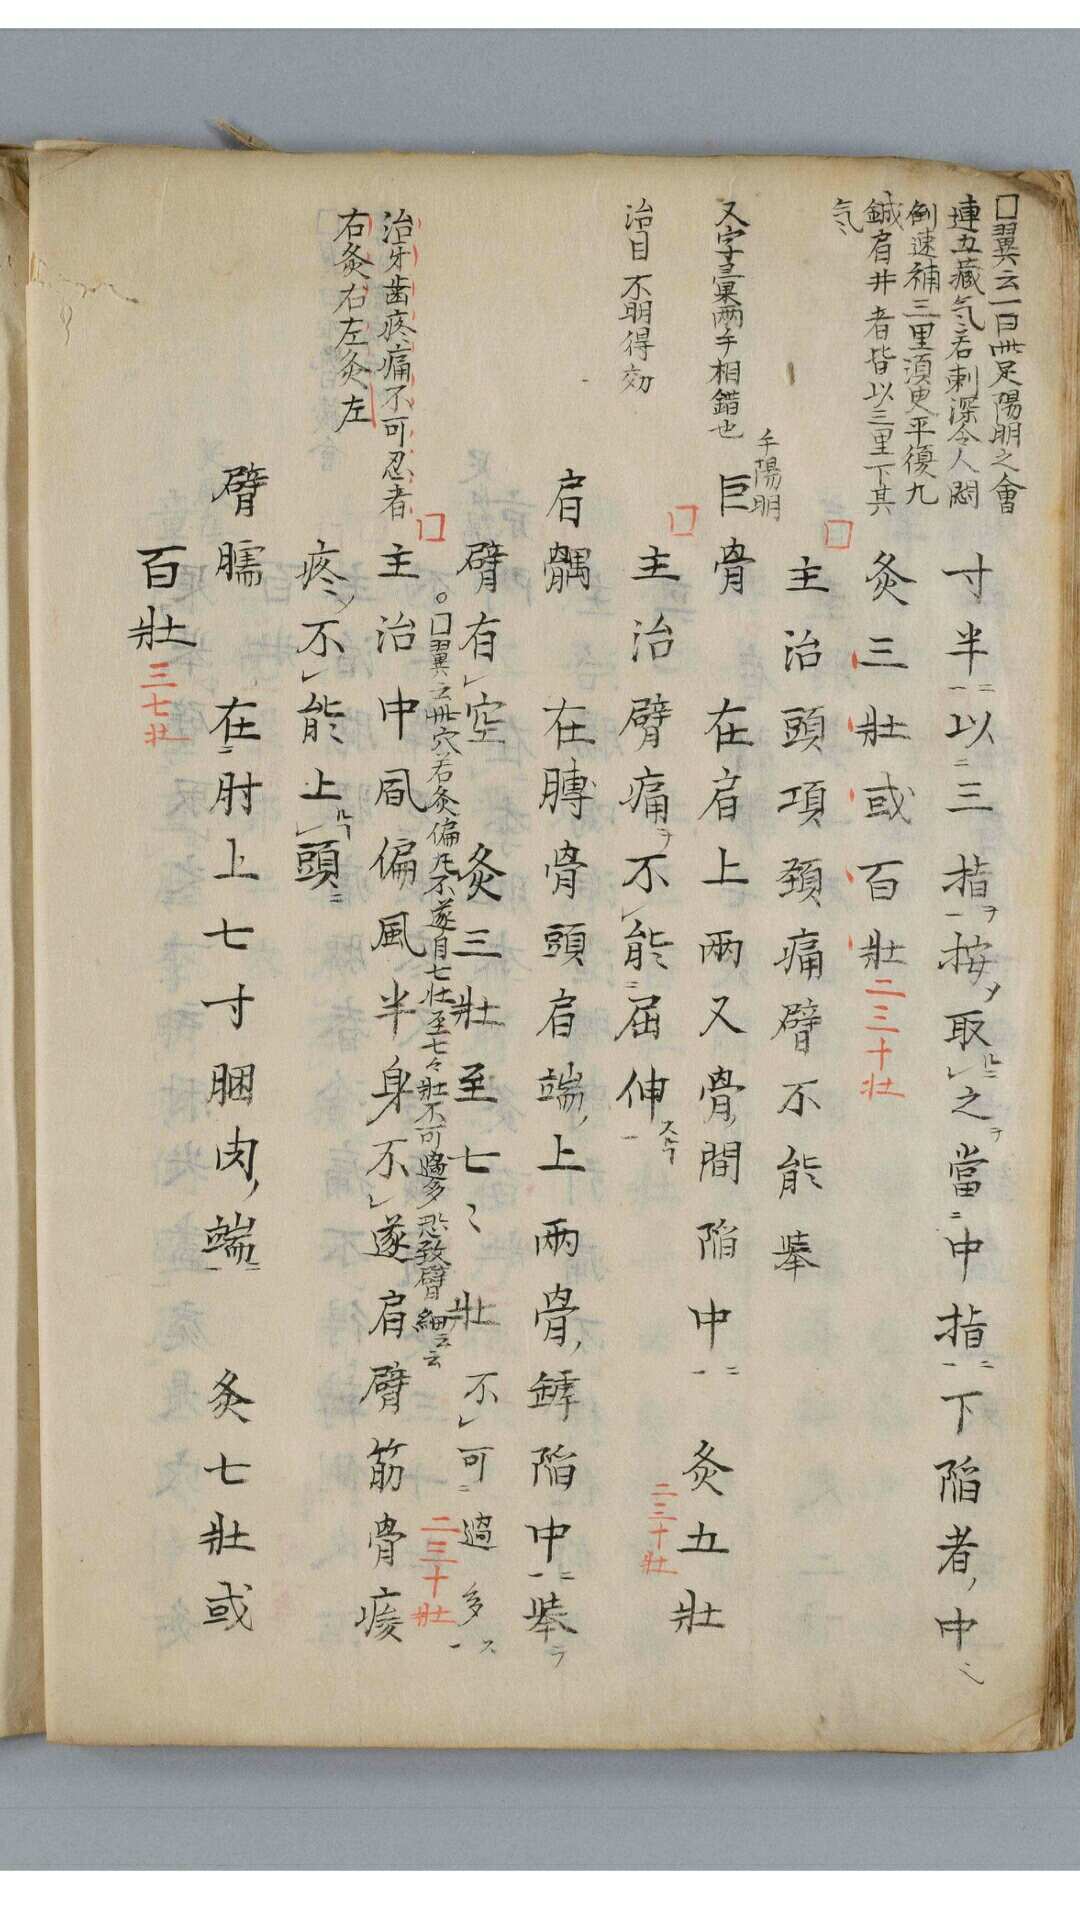 囗翼云一曰此足陽明之會
連五藏気若刺深令人悶
倒速補三里須臾平復凡
鍼肩井者皆以三里下其
気
寸半以三指ヲ按ノ取之ヲ當中指下陥者中
灸三壮或百壮二三十壮
主治頭項頚痛臂不能挙
又字彙両手相錯也
手陽明
巨骨 在肩上両叉骨間陥中 灸五壮
二三十壮
治目不明得効
主治臂痛ヲ不能屈伸
肩髃 在膊骨頭肩端上両骨罅陥中挙
臂有空 灸三壮至七〻壮 不可過多
囗翼云此穴若灸偏風不遂自七壮至七々壮不可過多恐致臂細云云
治牙歯疼痛不可忍者
右灸右左灸左
主治中風偏風半身不遂肩臂筋骨痠
二三十壮
疼不能上頭
臂臑 在肘上七寸䐃肉端 灸七壮或
百壮三七壮